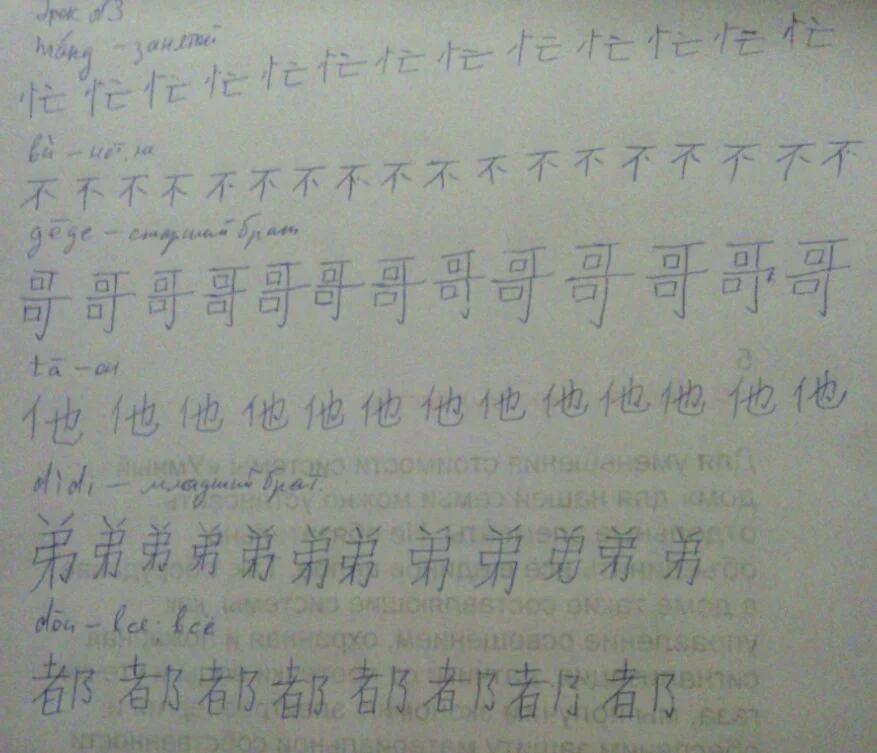 Урок №3
máng – занятой
忙 忙 忙 忙 忙 忙 忙 忙 忙 忙 忙 忙 忙
bù – нет, не
不 不 不 不 不 不 不 不 不 不 不 不 不 不 不 不 不 不
gēge – старший брат
哥 哥 哥 哥 哥 哥 哥 哥 哥 哥 哥 哥 哥
tā – он
他 他 他 他 他 他 他 他 他 他 他 他 他
dìdi – младший брат
弟 弟 弟 弟 弟 弟 弟 弟 弟 弟 弟 弟
dōu – все; всё
都 都 都 都 都 都 都 都